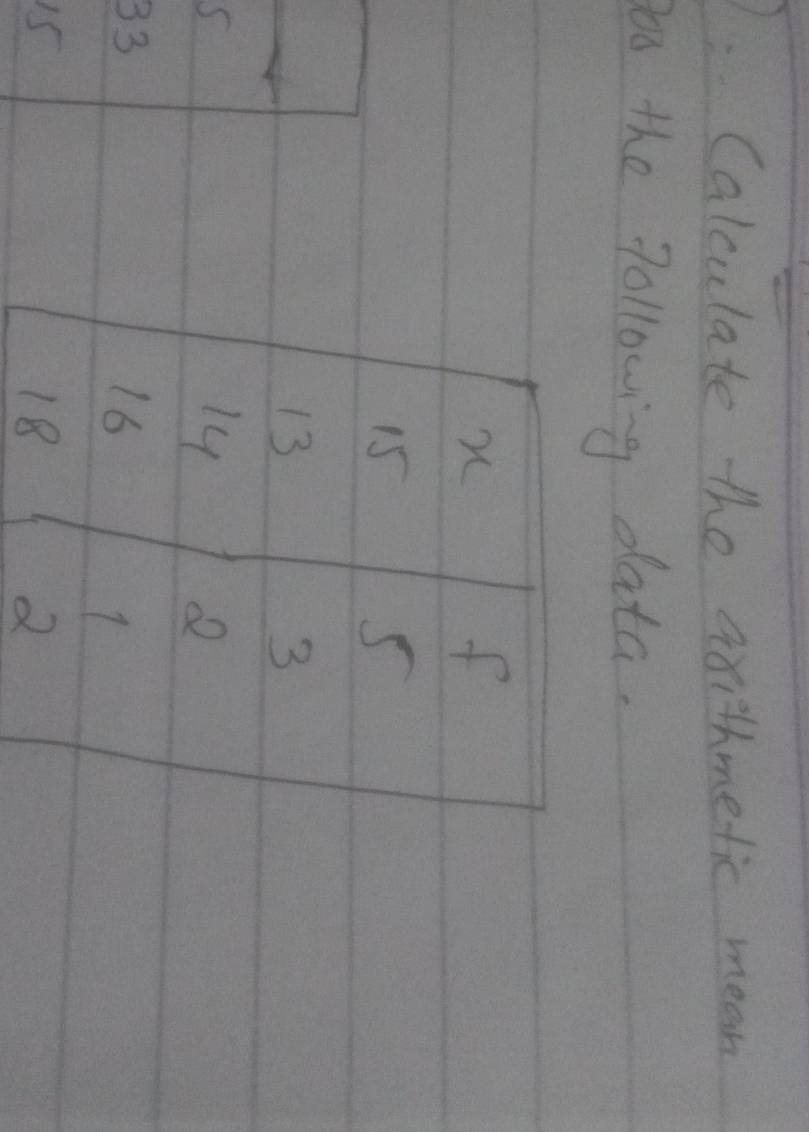 Calculate the arithmetic mean
for the following data.
x f
15 5
13 3
14 2
5 16 1
33 18 2
15